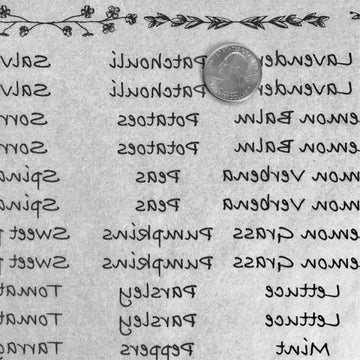 Lavender Patchouli Salv
Lavender Patchouli Salv
emon Balm Potatoes Sorr
emon Balm Potatoes Sorr
emon Verbena Peas Spina
emon Verbena Peas Spina
emon Grass Pumpkins Sweet
emon Grass Pumpkins Sweet
Lettuce Parsley Tomat
Lettuce Parsley Tomat
Mint Peppers Tarrag